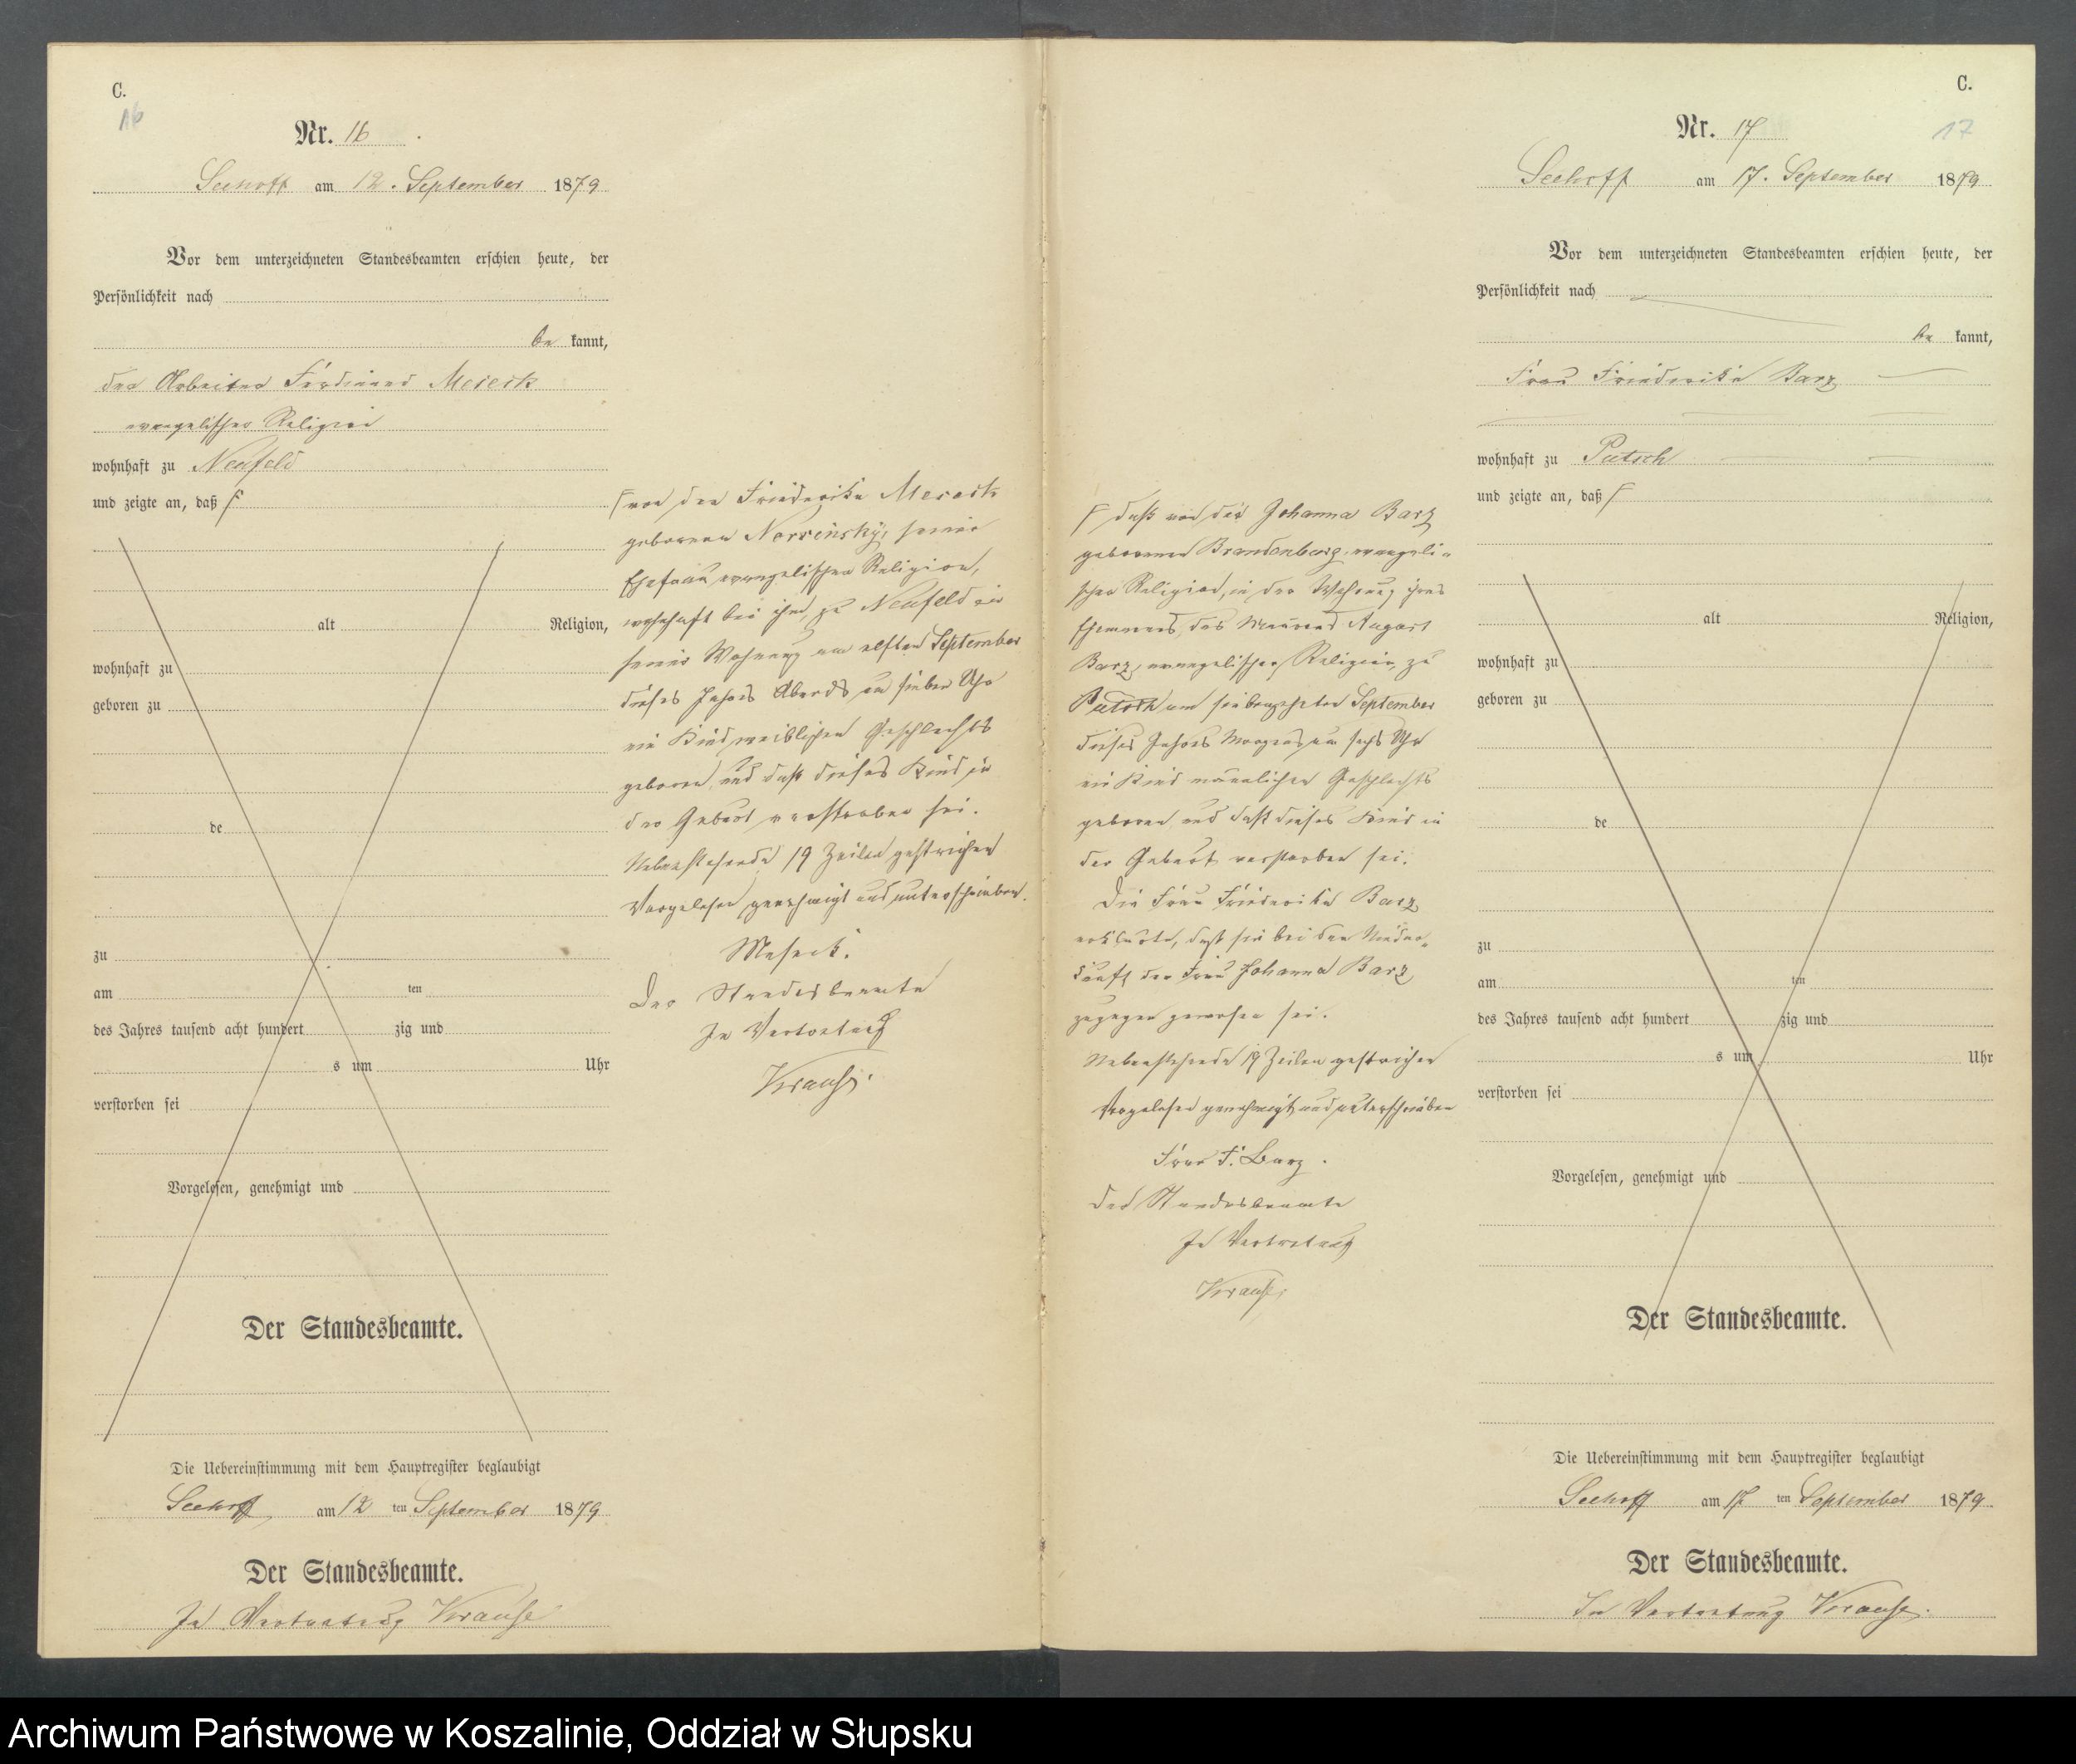 C.
16
Nr. 16
Seehoff am 12. September 1879
Vor dem unterzeichneten Standesbeamten erschien heute, der
Persönlichkeit nach
be kannt,
der Arbeiter Ferdinand Meseck
evangelischer Religion
wohnhaft zu Neufeld
und zeigte an, daß
alt Religion,
wohnhaft zu
geboren zu
de
zu
am ten
des Jahres tausend acht hundert zig und
s um Uhr
verstorben sei
Vorgelesen, genehmigt und
Der Standesbeamte.
Die Uebereinstimmung mit dem Hauptregister beglaubigt
Seehoff am 12 ten September 1879
Der Standesbeamte.
In Vertretung Krause
von der Friederike Meseck
geborenen seiner
Ehefrau, evangelischer Religion,
wohnhaft bei ihm, zu Neufeld in
seiner Wohnung am elften September
dieses Jahres Abends um sieben Uhr
ein Kind weiblichen Geschlechts
geboren, und daß dieses Kind in
der Geburt verstorben sei.
Nebenstehende 19 Zeilen gestrichen
Vorgelesen genehmigt und unterschrieben.
Meseck.
Der Standesbeamte
In Vertretung
Krause.
daß von der Johanna Barz
geborenen Brandenburg, evangeli-
scher Religion, in der Wohnung ihres
Ehemanns, des August
Barz, evangelischer Religion, zu
Putsch am siebenzehnten September
dieses Jahres Morgens um sechs Uhr
ein Kind männlichen Geschlechts
geboren und daß dieses Kind in
der Geburt verstorben sei.
Die Frau Friederike Barz
erklärte, daß sie bei der Nieder-
kunft der Frau Johanna Barz
zugegen gewesen sei.
Nebenstehende 19 Zeilen gestrichen
Vorgelesen genehmigt und unterschrieben
Frau F. Barz.
Der Standesbeamte
In Vertretung
Krause.
C.
17
Nr. 17
Seehoff am 17. September 1879
Vor dem unterzeichneten Standesbeamten erschien heute, der
Persönlichkeit nach
be kannt,
Frau Friederike Barz
wohnhaft zu Putsch
und zeigte an, daß
alt Religion,
wohnhaft zu
geboren zu
de
zu
am ten
des Jahres tausend acht hundert zig und
s um Uhr
verstorben sei
Vorgelesen, genehmigt und
Der Standesbeamte.
Die Uebereinstimmung mit dem Hauptregister beglaubigt
Seehoff am 17 ten September 1879
Der Standesbeamte.
In Vertretung Krause.
Archiwum Państwowe w Koszalinie, Oddział w Słupsku